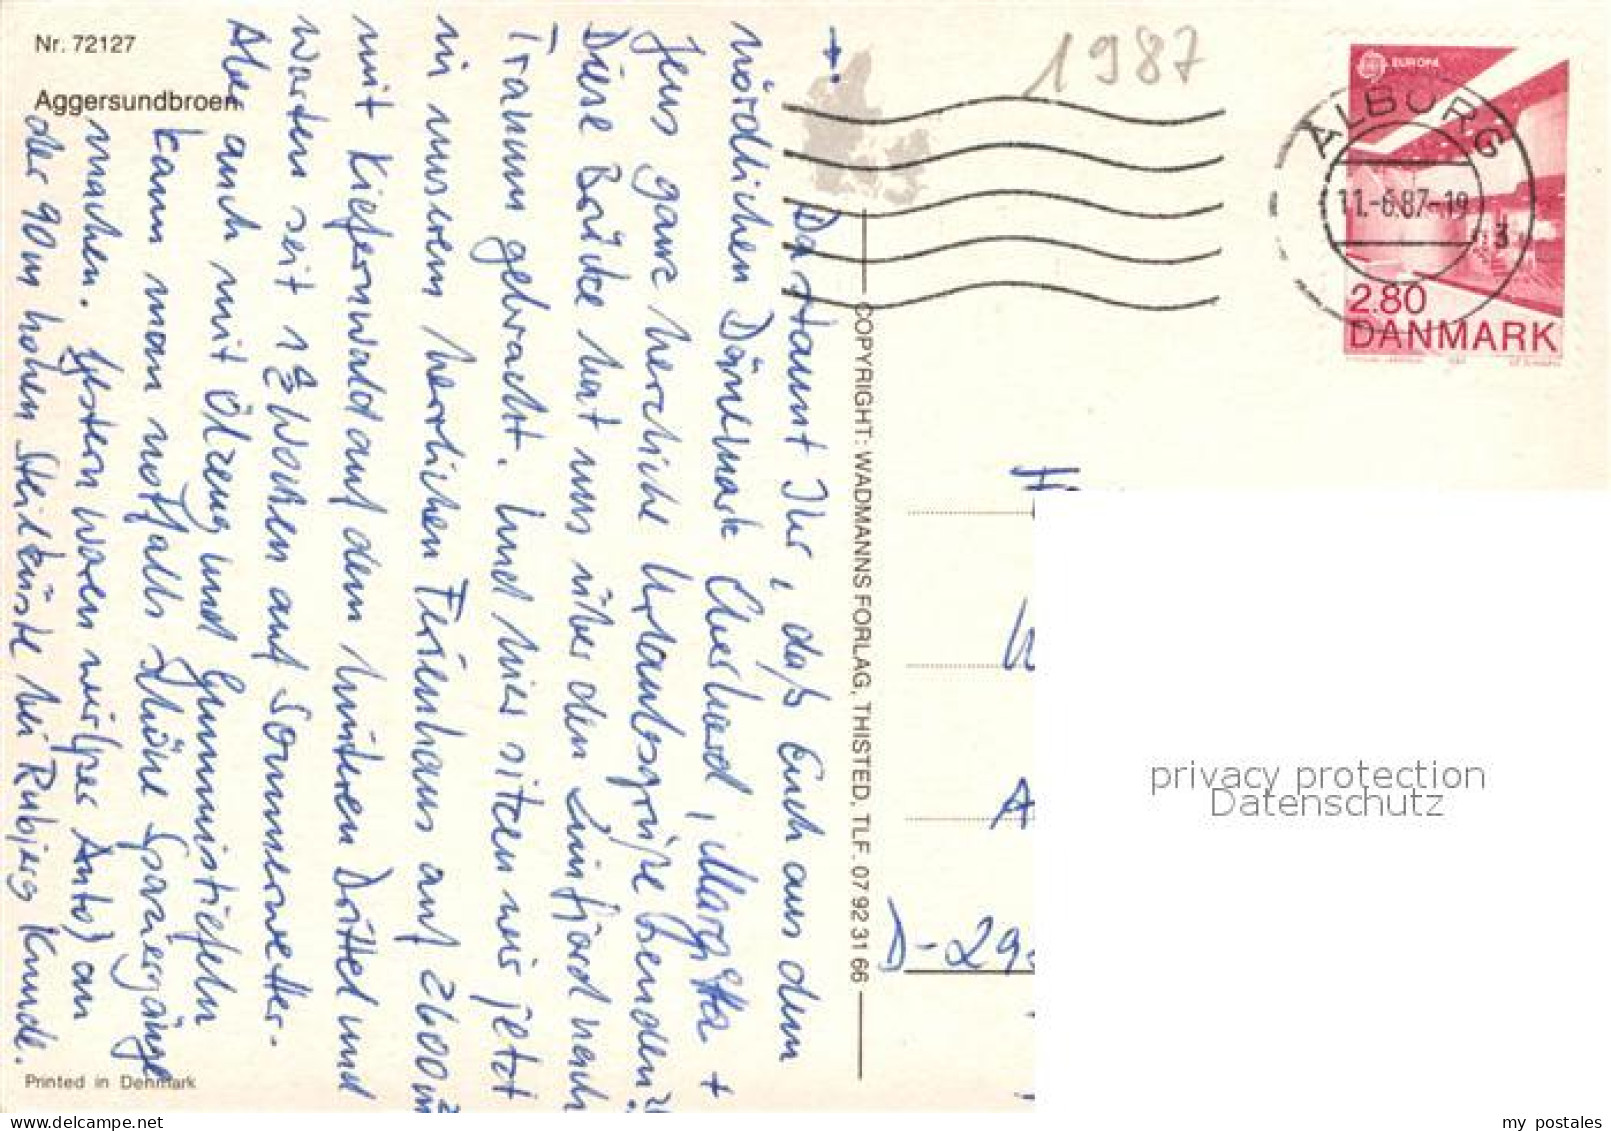 Nr. 72127
Aggersundbroen
Da staunt Ihr, daß Euch aus dem
nördlichen Dänemark Eberhard, Margitta +
Jens ganz herzliche Urlaubsgrüße senden?!
Diese Brücke hat uns über den Limfjord nach
Tranum gebracht. Und hier sitzen wir jetzt
in unserem herrlichen Ferienhaus auf 2600 m²
mit Kiefernwald auf dem hinteren Drittel und
warten seit 1½ Wochen auf Sommerwetter.
Aber auch mit Ölzeug und Gummistiefeln
kann man notfalls schöne Spaziergänge
machen. Gestern waren wir (per Auto) an
der 90 m hohen Steilküste bei Rubjerg Knude.
Printed in Denmark
COPYRIGHT: WADMANNS FORLAG, THISTED, TLF. 07 92 31 66
1987
EUROPA
ÅLBORG
11.-6.87-19
3
2.80
DANMARK
A
D-29
privacy protection
Datenschutz
my postales